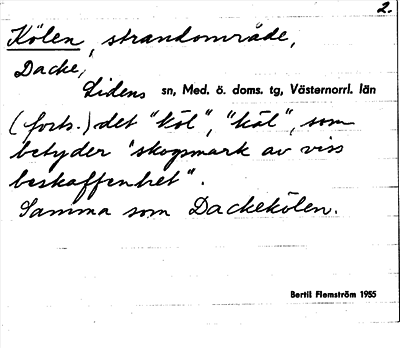 2.
Kölen, strandområde,
Dacke,
Lidens sn, Med. ö. doms. tg, Västernorrl. län
(forts.) det "köl", "käl", som
betyder "skogsmark av viss
beskaffenhet".
Samma som Dackekölen.
Bertil Flemström 1955